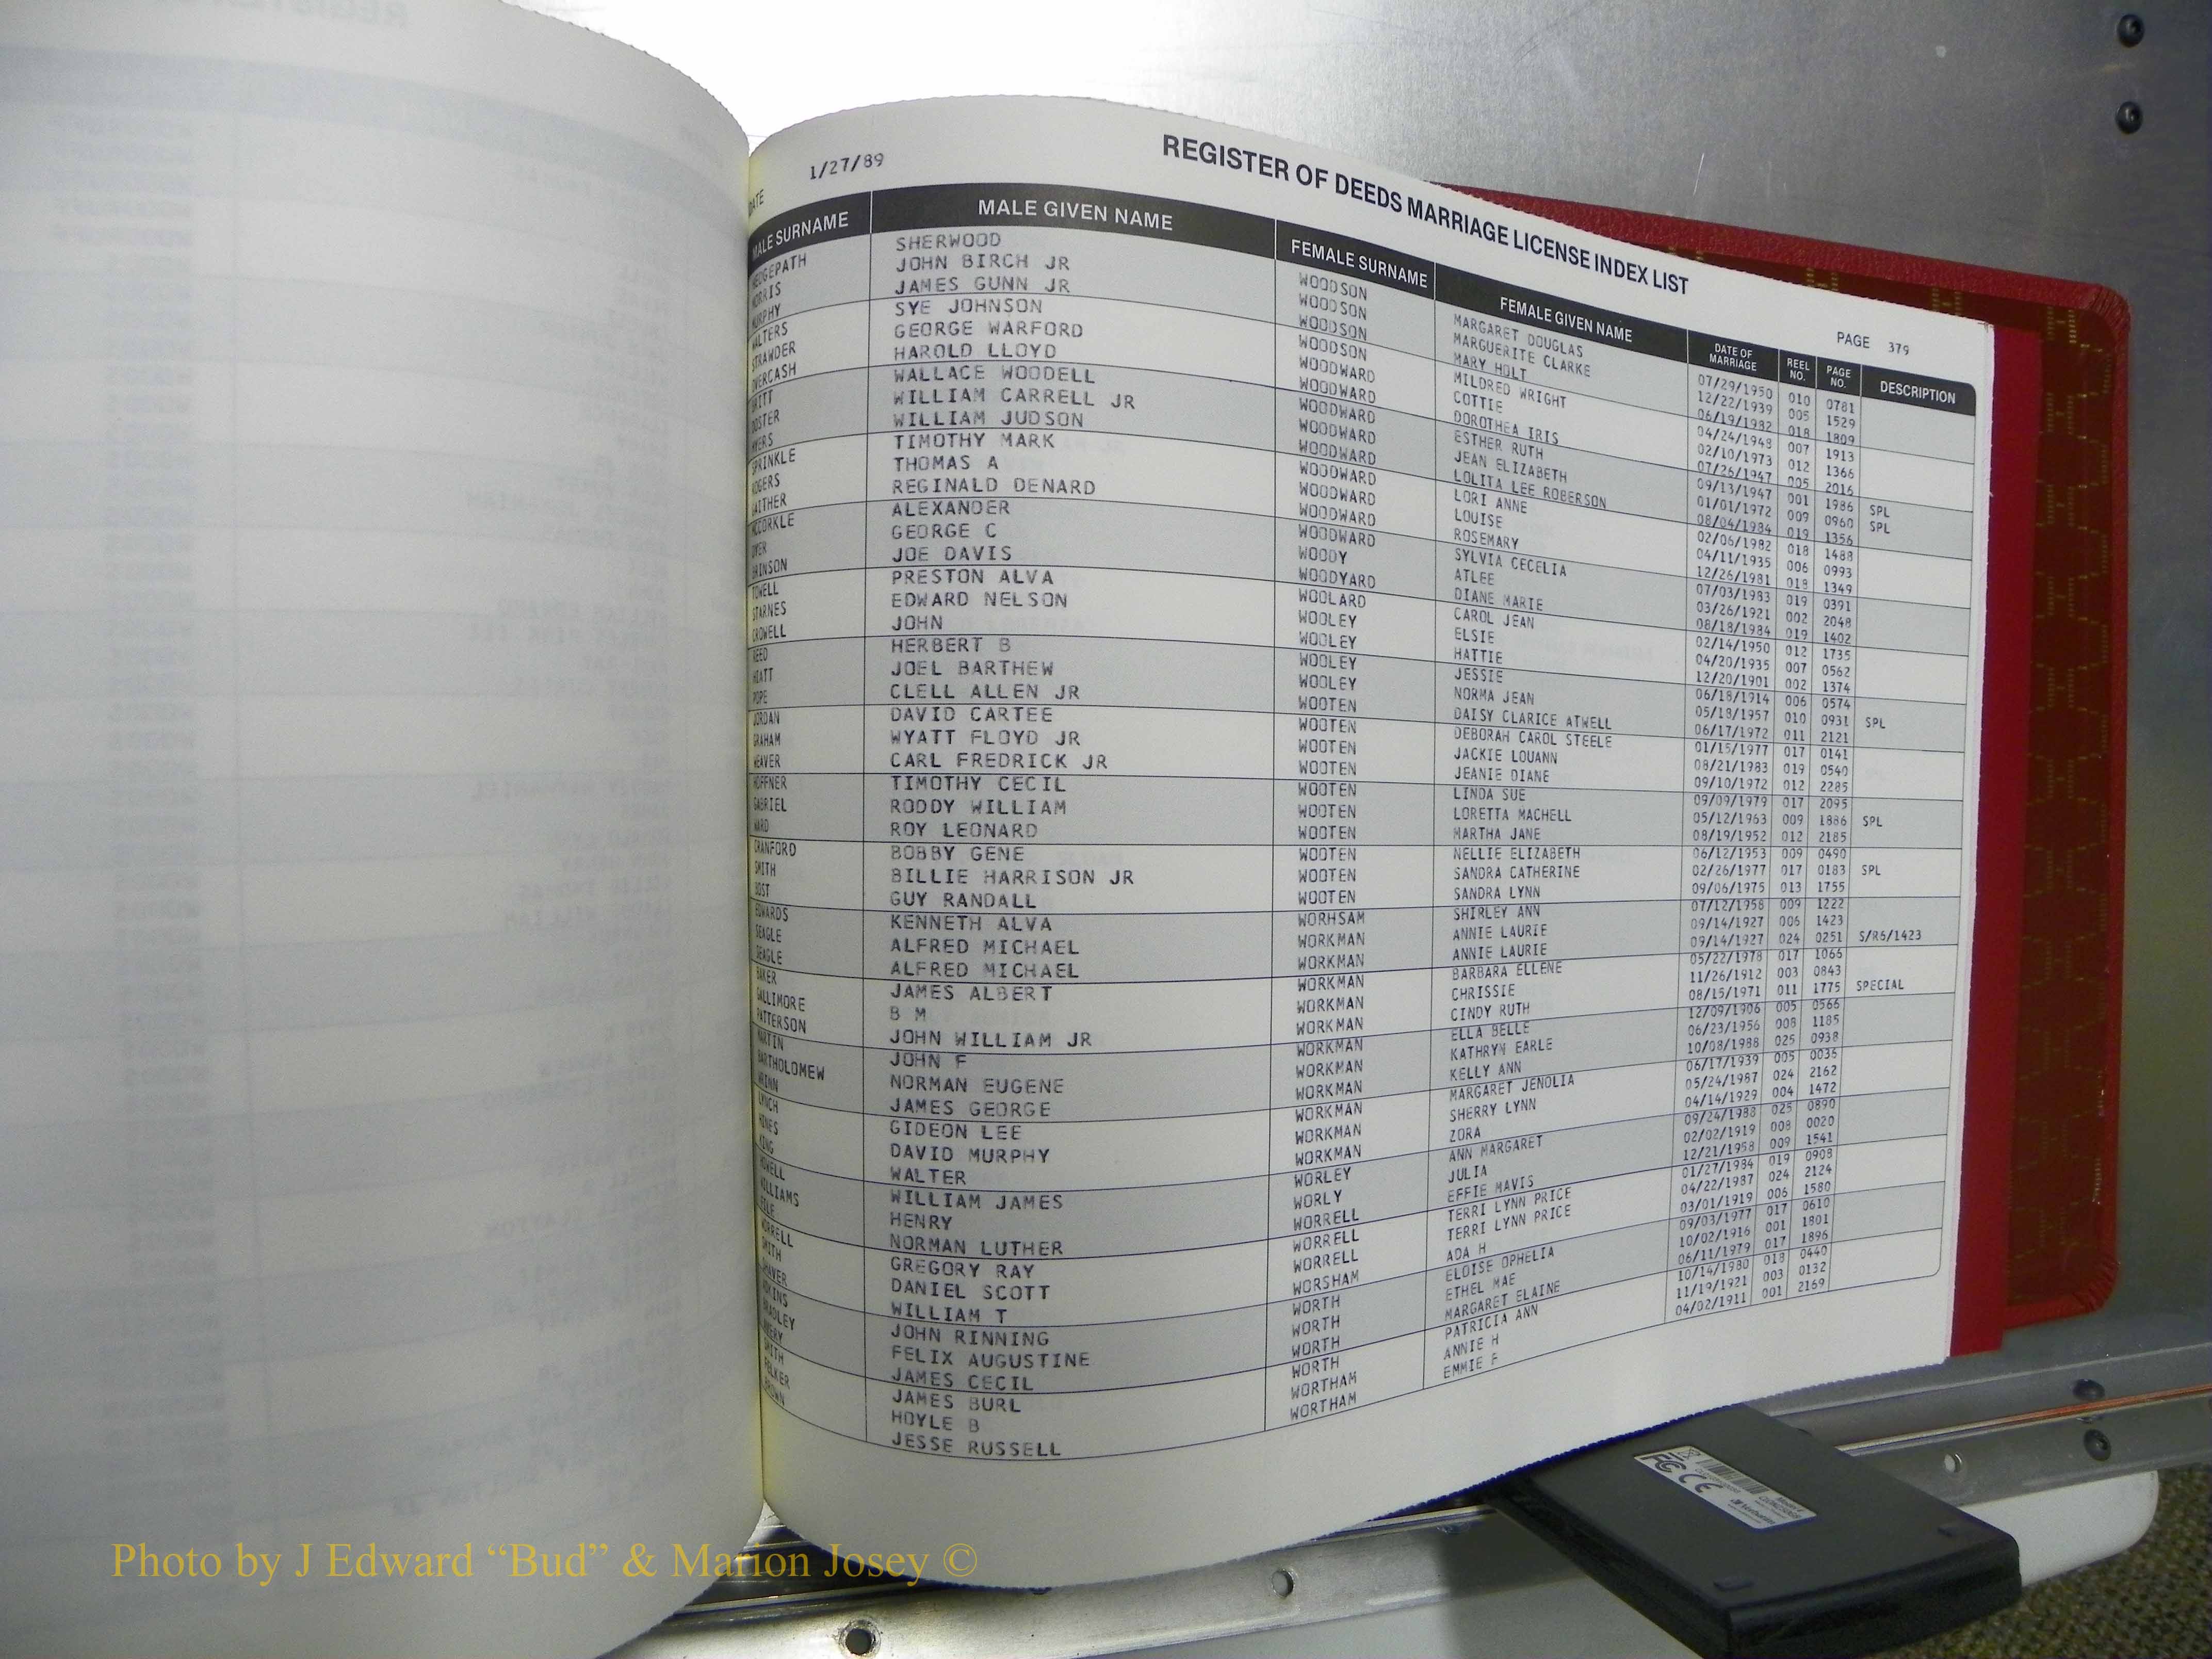 DATE 1/27/89
REGISTER OF DEEDS MARRIAGE LICENSE INDEX LIST
PAGE 379
MALE SURNAME MALE GIVEN NAME FEMALE SURNAME FEMALE GIVEN NAME DATE OF MARRIAGE REEL NO. PAGE NO. DESCRIPTION
HEDGEPATH SHERWOOD WOODSON MARGARET DOUGLAS 07/29/1950 010 0781
MORRIS JOHN BIRCH JR WOODSON MARGUERITE CLARKE 12/22/1939 005 1529
MURPHY JAMES GUNN JR WOODSON MARY HOLT 06/19/1982 018 1809
WALTERS SYE JOHNSON WOODSON MILDRED WRIGHT 04/24/1948 007 1913
STRAWDER GEORGE WARFORD WOODWARD COTTIE 02/10/1973 012 1366
OVERCASH HAROLD LLOYD WOODWARD DOROTHEA IRIS 07/26/1947 005 2016
BRITT WALLACE WOODELL WOODWARD ESTHER RUTH 09/13/1947 001 1986 SPL
FOSTER WILLIAM CARRELL JR WOODWARD JEAN ELIZABETH 01/01/1972 009 0960 SPL
MYERS WILLIAM JUDSON WOODWARD LOLITA LEE ROBERSON 08/04/1984 019 1356
SPRINKLE TIMOTHY MARK WOODWARD LORI ANNE 02/06/1982 018 1488
ROGERS THOMAS A WOODWARD LOUISE 04/11/1935 006 0993
GAITHER REGINALD DENARD WOODWARD ROSEMARY 12/26/1981 018 1349
MCCORKLE ALEXANDER WOODWARD SYLVIA CECELIA 07/03/1983 019 0391
GEORGE C WOODY ATLEE 03/26/1921 002 2048
BRINSON JOE DAVIS WOODYARD DIANE MARIE 08/18/1984 019 1402
TOWELL PRESTON ALVA WOOLARD CAROL JEAN 02/14/1950 012 1735
STARNES EDWARD NELSON WOOLEY ELSIE 04/20/1935 007 0562
CROWELL JOHN WOOLEY HATTIE 12/20/1901 002 1374
REED HERBERT B WOOLEY JESSIE 06/18/1914 006 0574
HIATT JOEL BARTHEW WOOLEY NORMA JEAN 05/18/1957 010 0931 SPL
POPE CLELL ALLEN JR WOOTEN DAISY CLARICE ATWELL 06/17/1972 011 2121
JORDAN DAVID CARTEE WOOTEN DEBORAH CAROL STEELE 01/15/1977 017 0141
GRAHAM WYATT FLOYD JR WOOTEN JACKIE LOUANN 08/21/1983 019 0540
WEAVER CARL FREDRICK JR WOOTEN JEANIE DIANE 09/10/1972 012 2285
HOFFNER TIMOTHY CECIL WOOTEN LINDA SUE 09/09/1979 017 2095
GABRIEL RODDY WILLIAM WOOTEN LORETTA MACHELL 05/12/1963 009 1886 SPL
WARD ROY LEONARD WOOTEN MARTHA JANE 08/19/1952 012 2185
CRANFORD BOBBY GENE WOOTEN NELLIE ELIZABETH 06/12/1953 009 0490
SMITH BILLIE HARRISON JR WOOTEN SANDRA CATHERINE 02/26/1977 017 0183 SPL
BOST GUY RANDALL WOOTEN SANDRA LYNN 09/06/1975 013 1755
EDWARDS KENNETH ALVA WORHSAM SHIRLEY ANN 07/12/1958 009 1222
BEAGLE ALFRED MICHAEL WORKMAN ANNIE LAURIE 09/14/1927 006 1423
BEAGLE ALFRED MICHAEL WORKMAN ANNIE LAURIE 09/14/1927 024 0251 S/R6/1423
BAKER JAMES ALBERT WORKMAN BARBARA ELLENE 05/22/1978 017 1066
GALLIMORE B M WORKMAN CHRISSIE 11/26/1912 003 0843
PATTERSON JOHN WILLIAM JR WORKMAN CINDY RUTH 08/15/1971 011 1775 SPECIAL
MARTIN JOHN F WORKMAN ELLA BELLE 12/09/1906 005 0566
BARTHOLOMEW NORMAN EUGENE WORKMAN KATHRYN EARLE 06/23/1956 008 1185
WRINN JAMES GEORGE WORKMAN KELLY ANN 10/08/1988 025 0938
LYNCH GIDEON LEE WORKMAN MARGARET JENOLIA 06/17/1939 005 0036
HINES DAVID MURPHY WORKMAN SHERRY LYNN 05/24/1987 024 2162
KING WALTER WORKMAN ZORA 04/14/1929 004 1472
HOWELL WILLIAM JAMES WORLEY ANN MARGARET 09/24/1988 025 0890
WILLIAMS HENRY WORLY JULIA 02/02/1919 008 0020
NORMAN LUTHER WORRELL EFFIE MAVIS 12/21/1958 009 1541
WORRELL GREGORY RAY WORRELL TERRI LYNN PRICE 01/27/1984 019 0908
SMITH DANIEL SCOTT WORRELL TERRI LYNN PRICE 04/22/1987 024 2124
SHAVER WILLIAM T WORSHAM ADA H 03/01/1919 006 1580
ADKINS JOHN RINNING WORTH ELOISE OPHELIA 09/03/1977 017 0610
BRADLEY FELIX AUGUSTINE WORTH ETHEL MAE 10/02/1916 001 1801
AVERY JAMES CECIL WORTH MARGARET ELAINE 06/11/1979 017 1896
SMITH JAMES BURL WORTH PATRICIA ANN 10/14/1980 018 0440
FELKER HOYLE B WORTHAM ANNIE H 11/19/1921 003 0132
BROWN JESSE RUSSELL WORTHAM EMMIE F 04/02/1911 001 2169
FC CE
Photo by J Edward “Bud” & Marion Josey ©